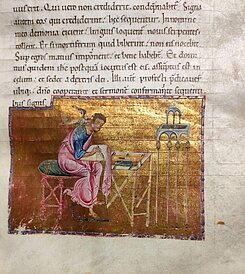 vus erit. Qui vero non crediderit, condempnabit. Signa
autem eos qui crediderint, hec sequentur. In nomine
meo demonia eicient, linguis loquentur novis, serpentes
tollent. Et si mortiferum quid biberint, non eis nocebit.
Sup egros manus imponent, et bene habebt. Et do
minus quidem ihc postquam locutus est eis, assuptus est in
celum, et sedet a dextris dei. Illi aut profecti pdicaverunt
ubiq, dno cooperante, et sermone confirmante sequenti
bus signis